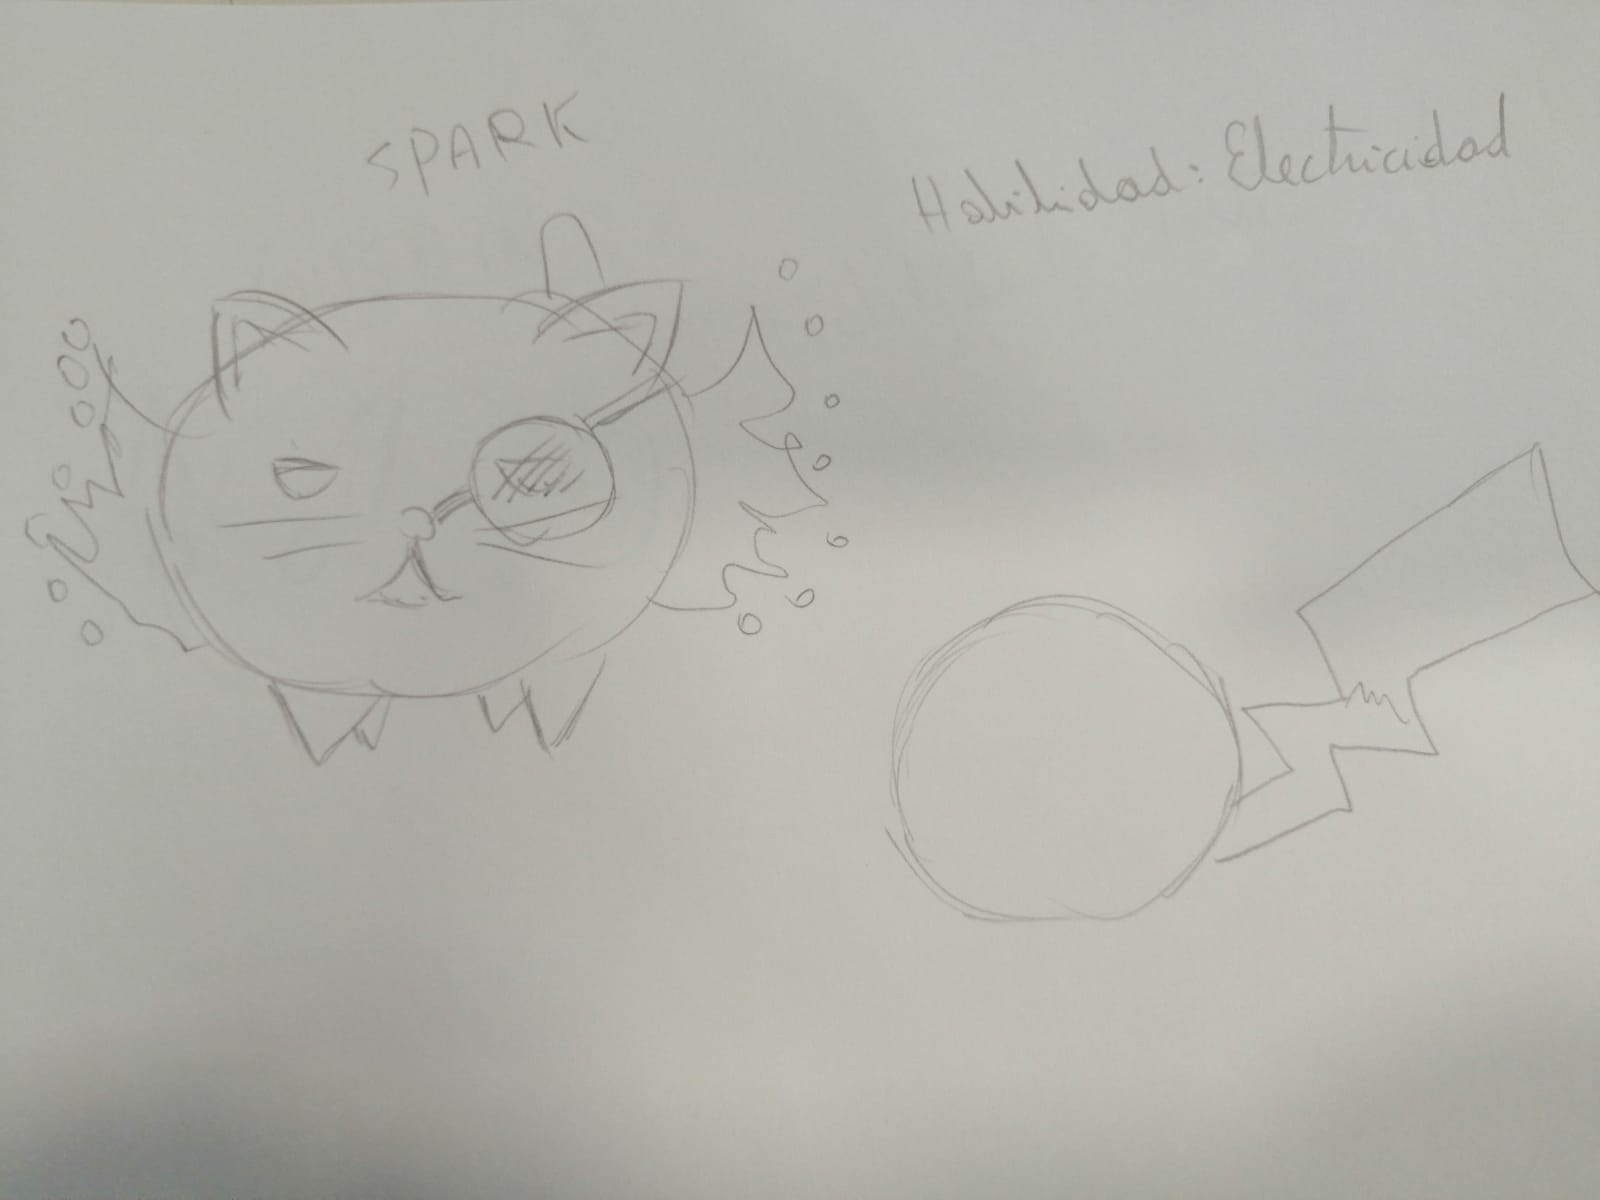 SPARK
Habilidad: Electricidad